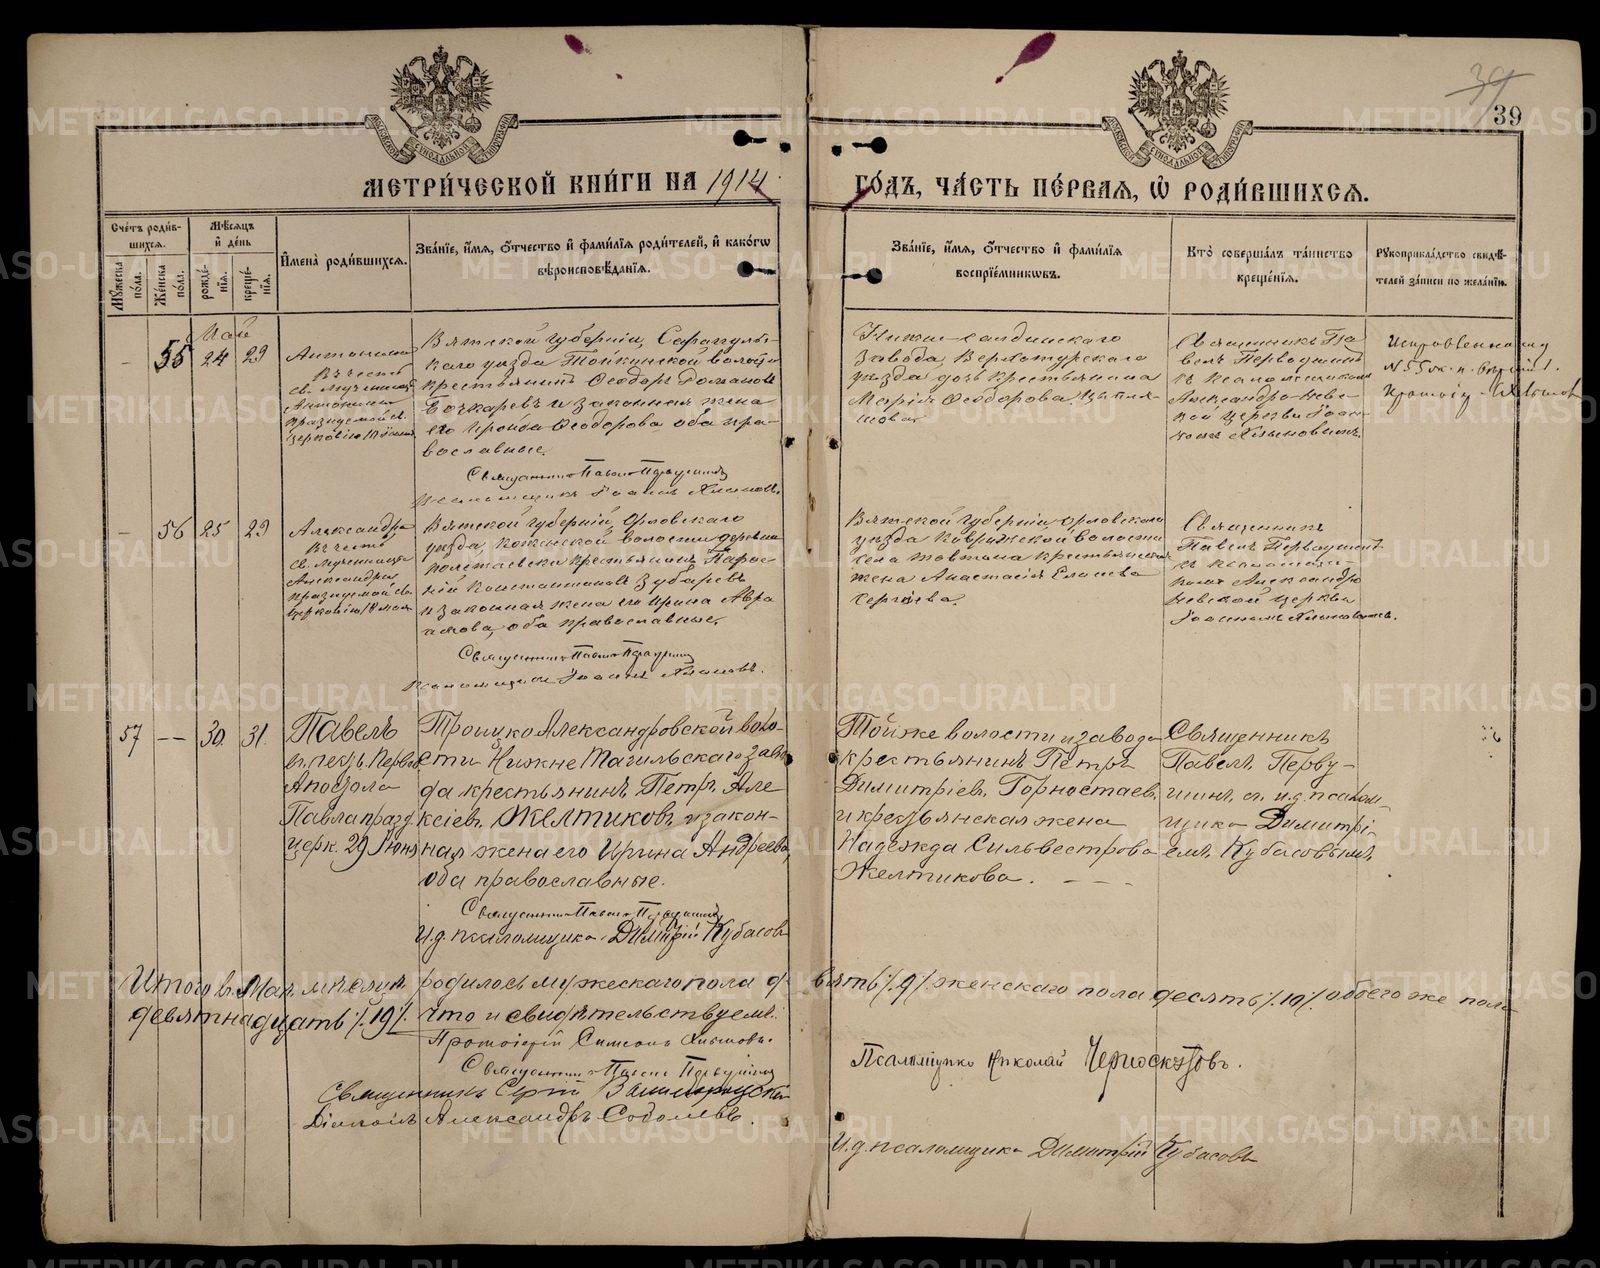 39
39
МЕТРИ́ЧЕСКОЙ КНИ́ГИ НА 1914
ГО́ДЪ, ЧА́СТЬ ПЕ́РВАЯ, Ѿ РОДИ́ВШИХСЯ.
Сче́тъ роди́вшихся.
Мꙋ́жеска по́ла.
Же́нска по́ла.
Мѣ́сяцъ и́ де́нь
рожде́нїя.
креще́нїя.
И́мена̀ роди́вшихся.
Зва́нїе, и́мя, о́тчество и́ фами́лїя роди́телей, и́ како́гѡ
вѣроисповѣ́данїя.
Зва́нїе, и́мя, о́тчество и́ фами́лїя
воспрїе́мникѡвъ.
Кто̀ соверша́лъ та́инство
креще́нїя.
Рꙋкоприкла́дство свидѣ́-
телей за́писи по жела́нїю.
Май
55 24 29
Антонина
Въ честь
св. мученицы
Антонины
празднуемой св.
церковію
Вятской губерніи, Сарапуль-
каго уѣзда волости
крестьянинъ Ѳеодоръ
Бочкаревъ и законная жена
его Ѳеодорова оба пра-
вославные.
Священникъ Павелъ Первушинъ
Псаломщикъ Іоаннъ
Нижне-салдинскаго
завода, Верхотурскаго
уѣзда дочь крестьянина
Марія Ѳеодорова
Священникъ Па
велъ Первушинъ
съ псаломщикомъ
Александро-Нев-
ской церкви Іоан-
номъ
56 25 29
Александра
Въ честь
св. мученицы
Александры
празднуемой св.
церковію
Вятской губерніи, Орловскаго
уѣзда, волости деревни
крестьянинъ
Зубаревъ
и законная жена его Ирина Авра
амова, оба православные.
Священникъ Павелъ Первушинъ
Псаломщикъ Іоаннъ
Вятской губерніи Орловскаго
уѣзда волости
села крестьянская
жена Анастасія
Сергѣева.
Священникъ
Павелъ Первушинъ
съ псаломщи-
комъ Александро
Невской церкви
Іоанномъ
57 — 30. 31.
Павелъ
въ честь Первов.
Апостола
Павла празд.
церк. 29 Іюня
Троицко Александровской воло-
сти Нижне Тагильскаго заво
да крестьянинъ Петръ Але
ксіевъ Желтиковъ и закон-
ная жена его Ирина Андреева,
оба православные.
Священникъ Павелъ Первушинъ
И.д. псаломщика Димитрій Кубасовъ
Той же волости и завода
крестьянинъ Петръ
Димитріевъ Горностаевъ
и крестьянская жена
Надежда Сильвестрова
Желтикова.
Священникъ
Павелъ Перву-
шинъ съ и.д. псалом-
щика Димитрі-
емъ Кубасовымъ
Итого въ Маѣ мѣсяцѣ родилось мужескаго пола де-
вять /:9:/ женскаго пола десять /:10:/ обоего же пола
девятнадцать /:19:/. Что и свидѣтельствуемъ:
Протоіерей Симеонъ
Священникъ Павелъ Первушинъ
Священникъ Сергій
Діаконъ Александръ Соболевъ
Псаломщикъ Николай Черноскутовъ.
И.д. псаломщика Димитрій Кубасовъ